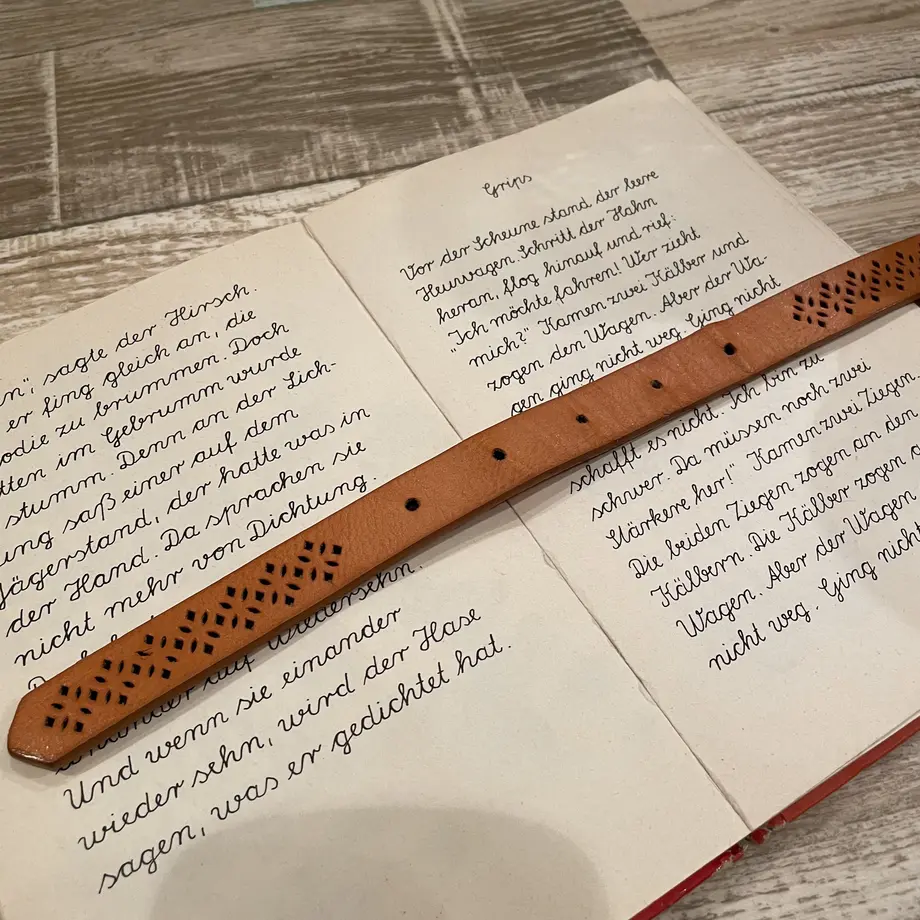 n", sagte der Hirsch.
er fing gleich an, die
odie zu brummen. Doch
tten im Gebrumm wurde
stumm. Denn an der Lich-
ung saß einer auf dem
Jägerstand, der hatte was in
der Hand. Da sprachen sie
nicht mehr von Dichtung.
auf Wiedersehn.
Und wenn sie einander
wieder sehn, wird der Hase
sagen, was er gedichtet hat.
Grips
Vor der Scheune stand der leere
Heuwagen. Schritt der Hahn
heran, flog hinauf und rief:
„Ich möchte fahren! Wer zieht
mich?" Kamen zwei Kälber und
zogen den Wagen. Aber der Wa-
gen ging nicht weg. Ging nicht
schafft es nicht. Ich bin zu
schwer. Da müssen noch zwei
Stärkere her!" Kamen zwei Ziegen.
Die beiden Ziegen zogen an den
Kälbern. Die Kälber zogen a
Wagen. Aber der Wagen
nicht weg. Ging nich